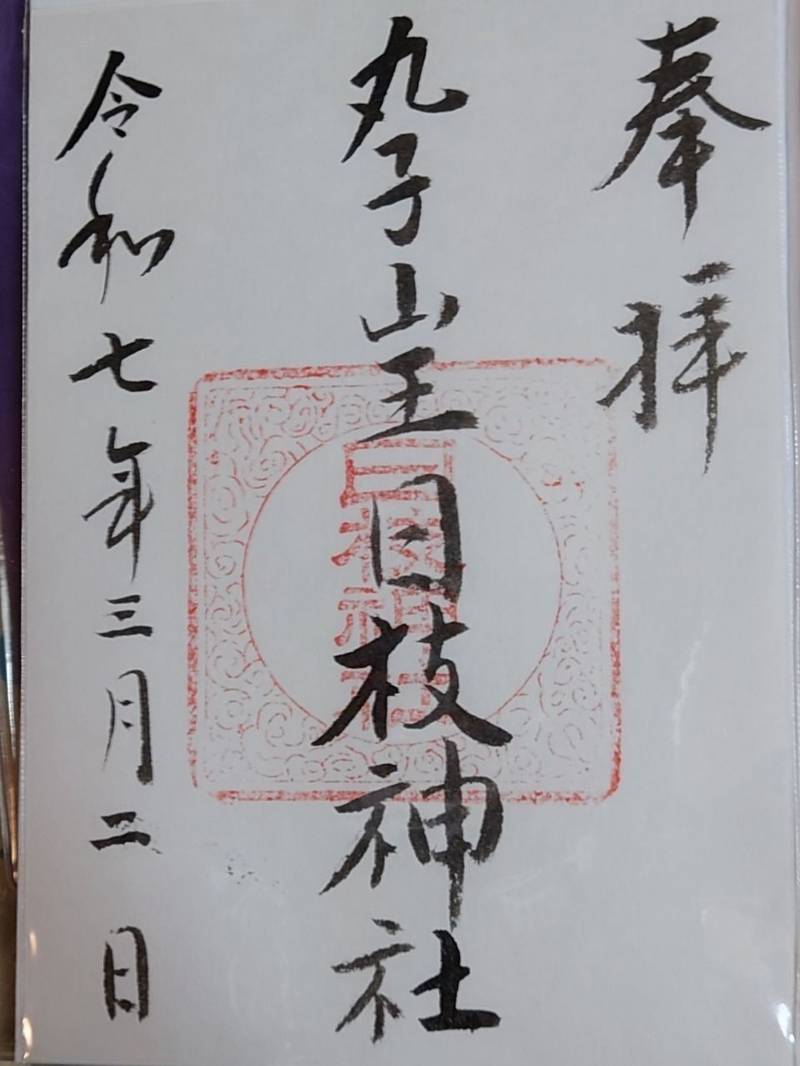 奉拝
丸子山王日枝神社
日枝神社
令和七年三月二日